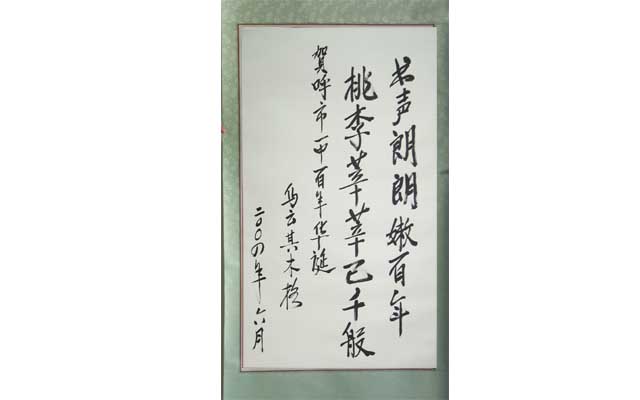 书声朗朗嫩百年
桃李莘莘已千般
賀呼市一中百年华诞
乌云其木格
二〇〇四年六月